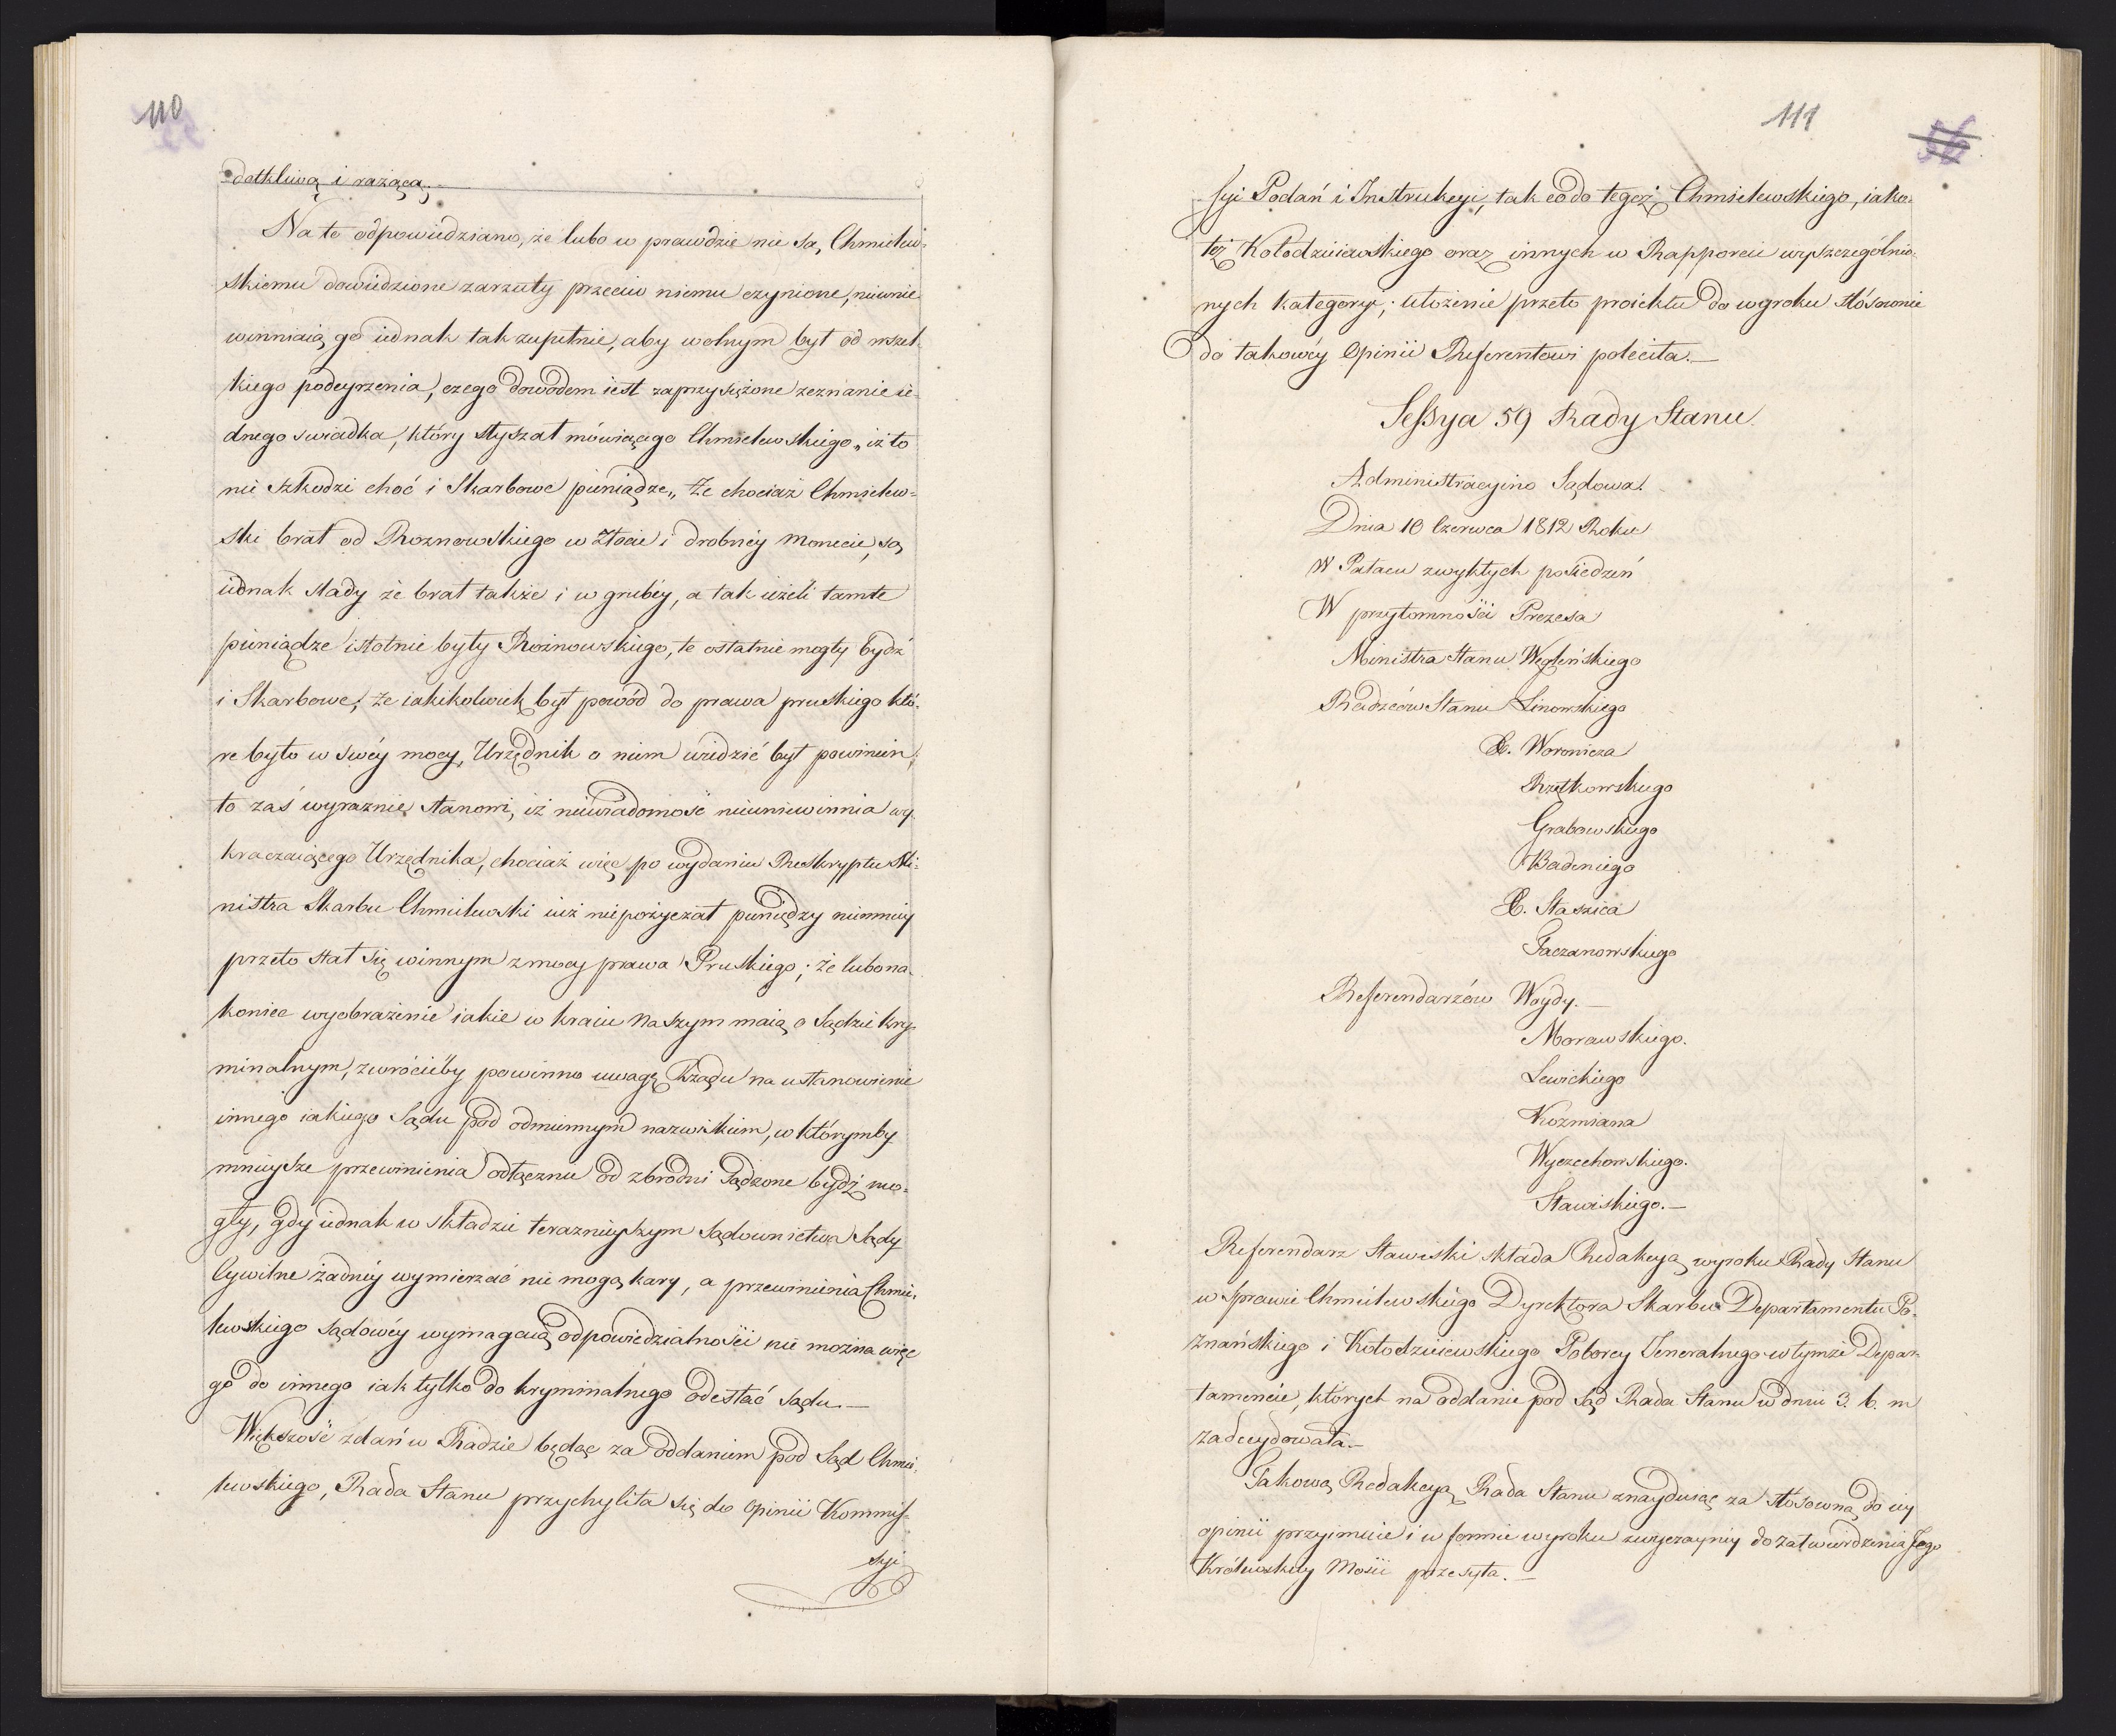 110
dotkliwą i rażącą.
Na to odpowiedziano, że lubo w prawdzie nie są, Chmielew-
skiemu dowiedzione zarzuty przeciw niemu czynione, nieunie
winniaią go iednak tak zupełnie, aby wolnym był od wszel-
kiego podeyrzenia, czego dowodem iest zaprzysiężone zeznanie ie-
dnego swiadka, który słyszał mówiącego Chmielewskiego „iż to
nie szkodzi choć i Skarbowe pieniądze„ Że chociaż Chmielew-
ski brał od Roznowskiego w Złocie i drobnéy Monecie, są
iednak ślady że brał także i w grubéy, a tak ieżeli tamte
pieniądze istotnie były Rożnowskiego, te ostatnie mogły bydź
i Skarbowe; że iakikolwiek był powód do prawa pruskiego któ-
re było w swéy mocy, Urzędnik o niem wiedzić był powinien,
to zaś wyraznie stanowi, iż niewiadomość nieuniewinnia wy-
kraczaiącego Urzędnika, chociaż więc po wydaniu Reskryptu Mi-
nistra Skarbu Chmielewski iuż niepożyczał pieniędzy niemniey
przeto stał się winnym z mocy prawa Pruskiego; że lubo na-
koniec wyobrażenie iakie w kraiu Naszym maią o Sądzie kry-
minalnym, zwrócićby powinno uwagę Rządu na ustanowienie
innego iakiego Sądu pod odmiennym nazwiskiem, w którymby
mnieysze przewinienia odłącznie od zbrodni Sądzone bydź mo-
gły, gdy iednak w składzie teraznieyszym Sądownictwa Sądy
Cywilne żadnéy wymierzać nie mogą kary, a przewinienia Chmie-
lewskiego Sądowéy wymagaią odpowiedzialności nie można więc
go do innego iak tylko do kryminalnego odesłać Sądu.—
Większość zdań w Radzie będąc za oddaniem pod Sąd Chmie-
lewskiego, Rada Stanu przychyliła się do Opinii Kommis-
syi
111
56
syi Podań i Instrukcyi, tak co do tegoż Chmielewskiego, iako-
też Kołodzieiewskiego oraz innych w Rapporcie wyszczególnio-
nych kategoryi; ułożenie przeto proiektu do wyroku stósownie
do takowéy Opinii Referentowi poleciła.—
Sessya 59 Rady Stanu
Administracyino Sądowa.
Dnia 10 Czerwca 1812 Roku
W Pałacu zwykłych posiedzeń
W przytomności Prezesa
Ministra Stanu Węgleńskiego
Radzców Stanu Linowskiego
X. Woronicza
Rzętkowskiego
Grabowskiego
Badeniego
X. Staszica
Gaczanowskiego
Referendarzów Woydy.—
Morawskiego.
Lewickiego
Kozmiana
Wyczechowskiego.
Stawiskiego.—
Referendarz Stawiski składa Redakcyą wyroku Rady Stanu
w Sprawie Chmielewskiego Dyrektora Skarbu Departamentu Po-
znańskiego i Kołodzieiewskiego Poborcy Jeneralnego w tymże Depar-
tamencie, których na oddanie pod Sąd Rada Stanu w dniu 3. b. m
zadecydowała.—
Takową Redakcyą Rada Stanu znayduiąc za stósowną do iey
opinii przyimuie i w formie wyroku zwyczayney do zatwierdzenia Jego
Królewskiey Mości przesyła.—